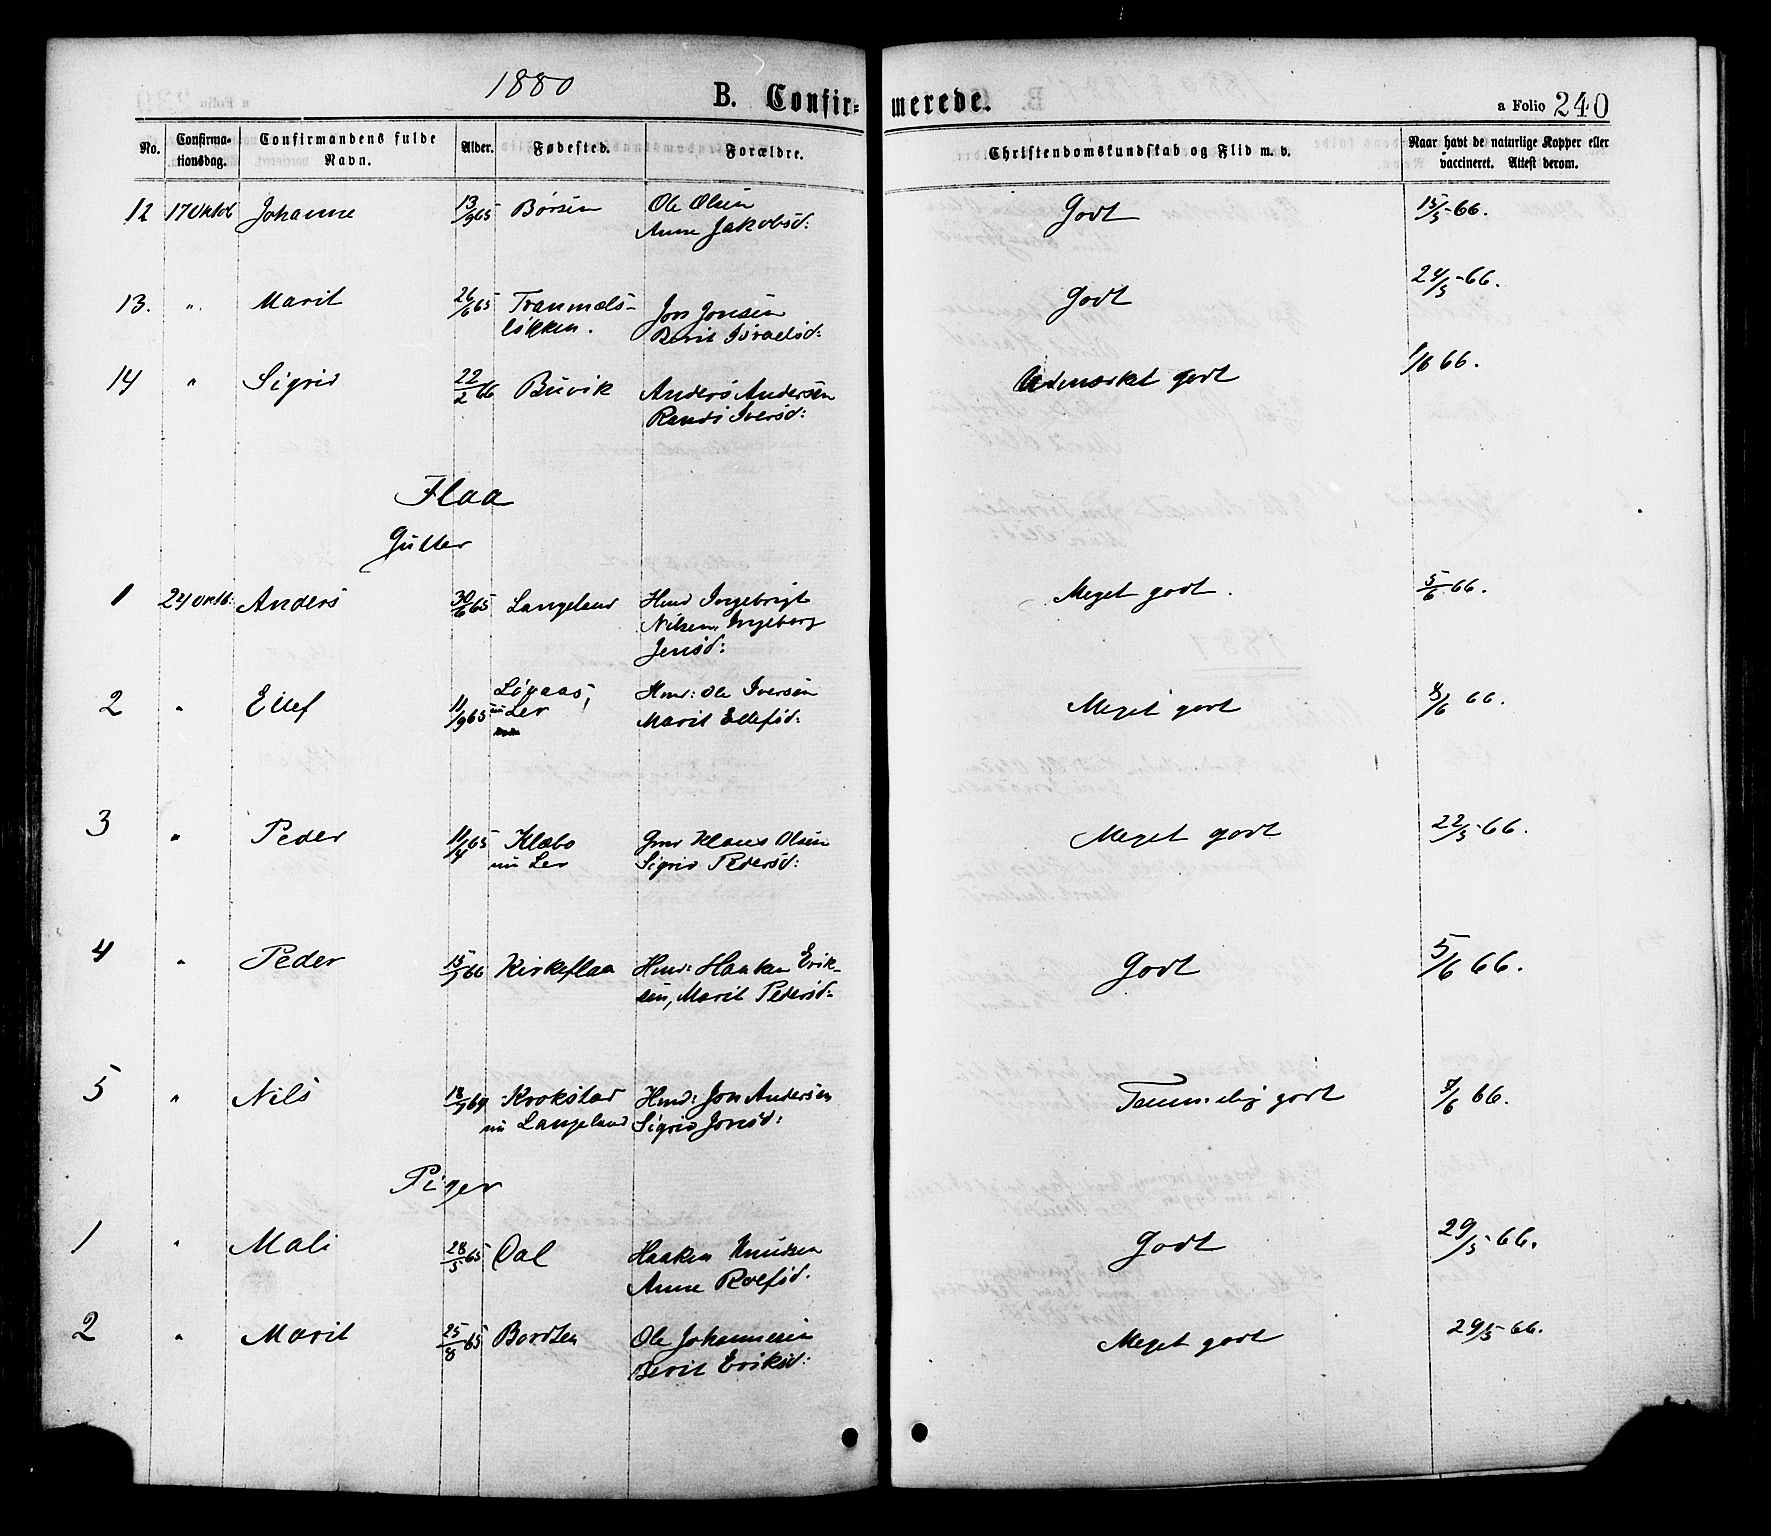 1880
B. Confirmerede.
a Folio 240
No. Confirmationsdag. Confirmandens fulde Navn. Alder. Fødested. Forældre. Christendomskundskab og Flid m. v. Naar havt de naturlige Kopper eller vaccineret. Attest derom.
12 17 Oktob Johanne 13/9 65 Børsen Ole Olsen Godt 15/5-66.
Anne Jakobsd:
13. " Marit 26/6 65 Tranmæls- Jon Jonsen Godt 24/5-66.
løkken. Berit Israelsd:
14 " Sigrid 22/2 66 Buvik Anders Andersen Udmærket godt 1/6 66.
Randi Iversd:
Flaa
Gutter
1 24 Oktb: Anders 30/6 65 Langeland Hmd Ingebrigt Meget godt. 5/6 66.
Nilsen, Ingeborg
Jensd:
2 " Ellef 11/9 65 Løvaas, Hmd: Ole Iversen Meget godt 8/6 66.
nu Ler Marit Ellefsd:
3 " Peder 11/4 65 Klæbo Gmd Klaus Olsen Meget godt 22/5-66.
nu Ler Sigrid Pedersd:
4 " Peder 15/1 66 Kirkeflaa Hmd: Haaken Erik- Godt 5/6 66.
sen, Marit Pedersd:
5 " Nils 18/9 64 Krokstad Hmd: Jon Andersen Temmelig godt 7/6 66.
nu Langeland Sigrid Jonsd:
Piger
1 " Mali 28/5 65 Dal Haaken Knudsen Godt 29/5-66.
Anne Rolfsd.
2 " Marit 25/8 65 Bordten Ole Johannesen Meget godt 29/5-66.
Berit Eriksd: